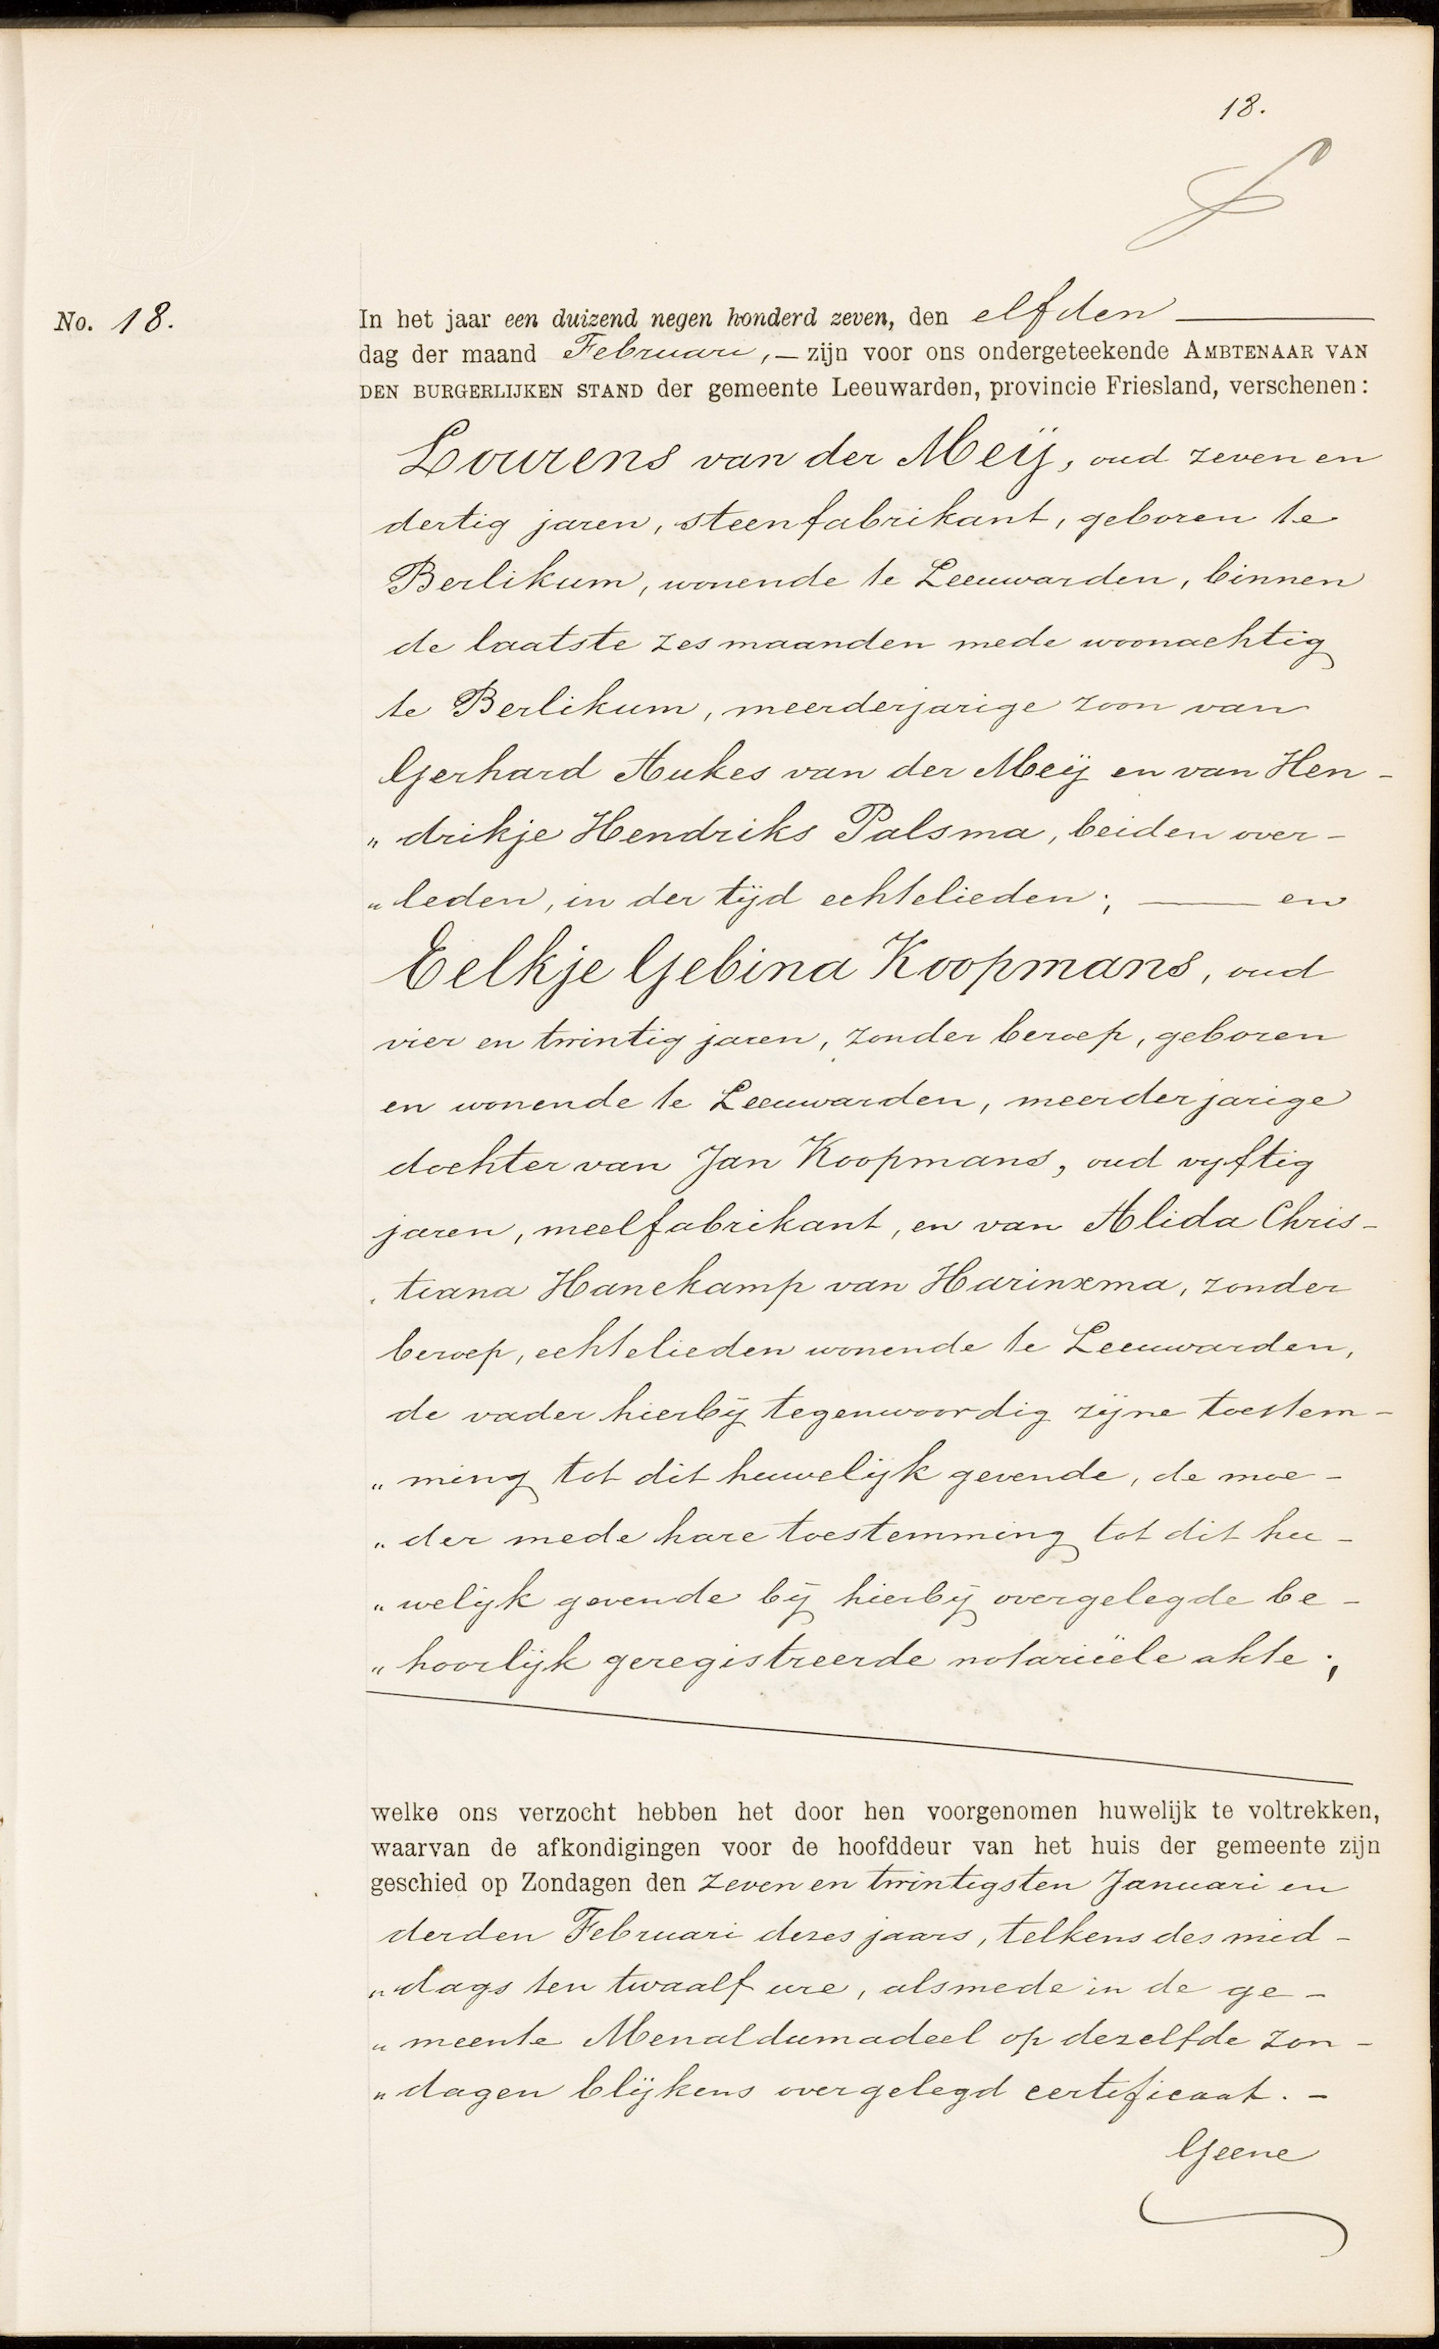 18.
No. 18.
In het jaar een duizend negen honderd zeven, den elfden
dag der maand Februari, — zijn voor ons ondergeteekende AMBTENAAR VAN
DEN BURGERLIJKEN STAND der gemeente Leeuwarden, provincie Friesland, verschenen:
Lourens van der Meij, oud zeven en
dertig jaren, steenfabrikant, geboren te
Berlikum, wonende te Leeuwarden, binnen
de laatste zes maanden mede woonachtig
te Berlikum, meerderjarige zoon van
Gerhard Aukes van der Meij en van Hen-
„ drikje Hendriks Palsma, beiden over-
„ leden, in der tijd echtelieden; — en
Eelkje Gebina Koopmans, oud
vier en twintig jaren, zonder beroep, geboren
en wonende te Leeuwarden, meerderjarige
dochter van Jan Koopmans, oud vyftig
jaren, meelfabrikant, en van Alida Chris-
„ tiana Hanekamp van Harinxma, zonder
beroep, echtelieden wonende te Leeuwarden,
de vader hierbij tegenwoordig zijne toestem-
„ ming tot dit huwelijk gevende, de moe-
„ der mede hare toestemming tot dit hu-
„ welijk gevende bij hierbij overgelegde be-
„ hoorlijk geregistreerde notariëele akte;
welke ons verzocht hebben het door hen voorgenomen huwelijk te voltrekken,
waarvan de afkondigingen voor de hoofddeur van het huis der gemeente zijn
geschied op Zondagen den zeven en twintigsten Januari en
derden Februari dezes jaars, telkens des mid-
„ dags ten twaalf ure, alsmede in de ge-
„ meente Menaldumadeel op dezelfde zon-
„ dagen blijkens overgelegd certificaat. —
Geene